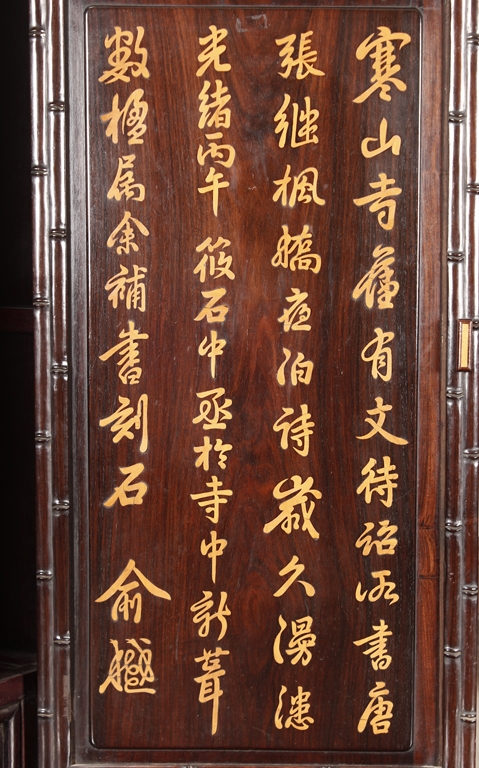 寒山寺舊有文待詔所書唐
張繼楓橋夜泊詩歲久漫漶
光緒丙午筱石中丞於寺中新葺
數楹属余補書刻石 俞樾